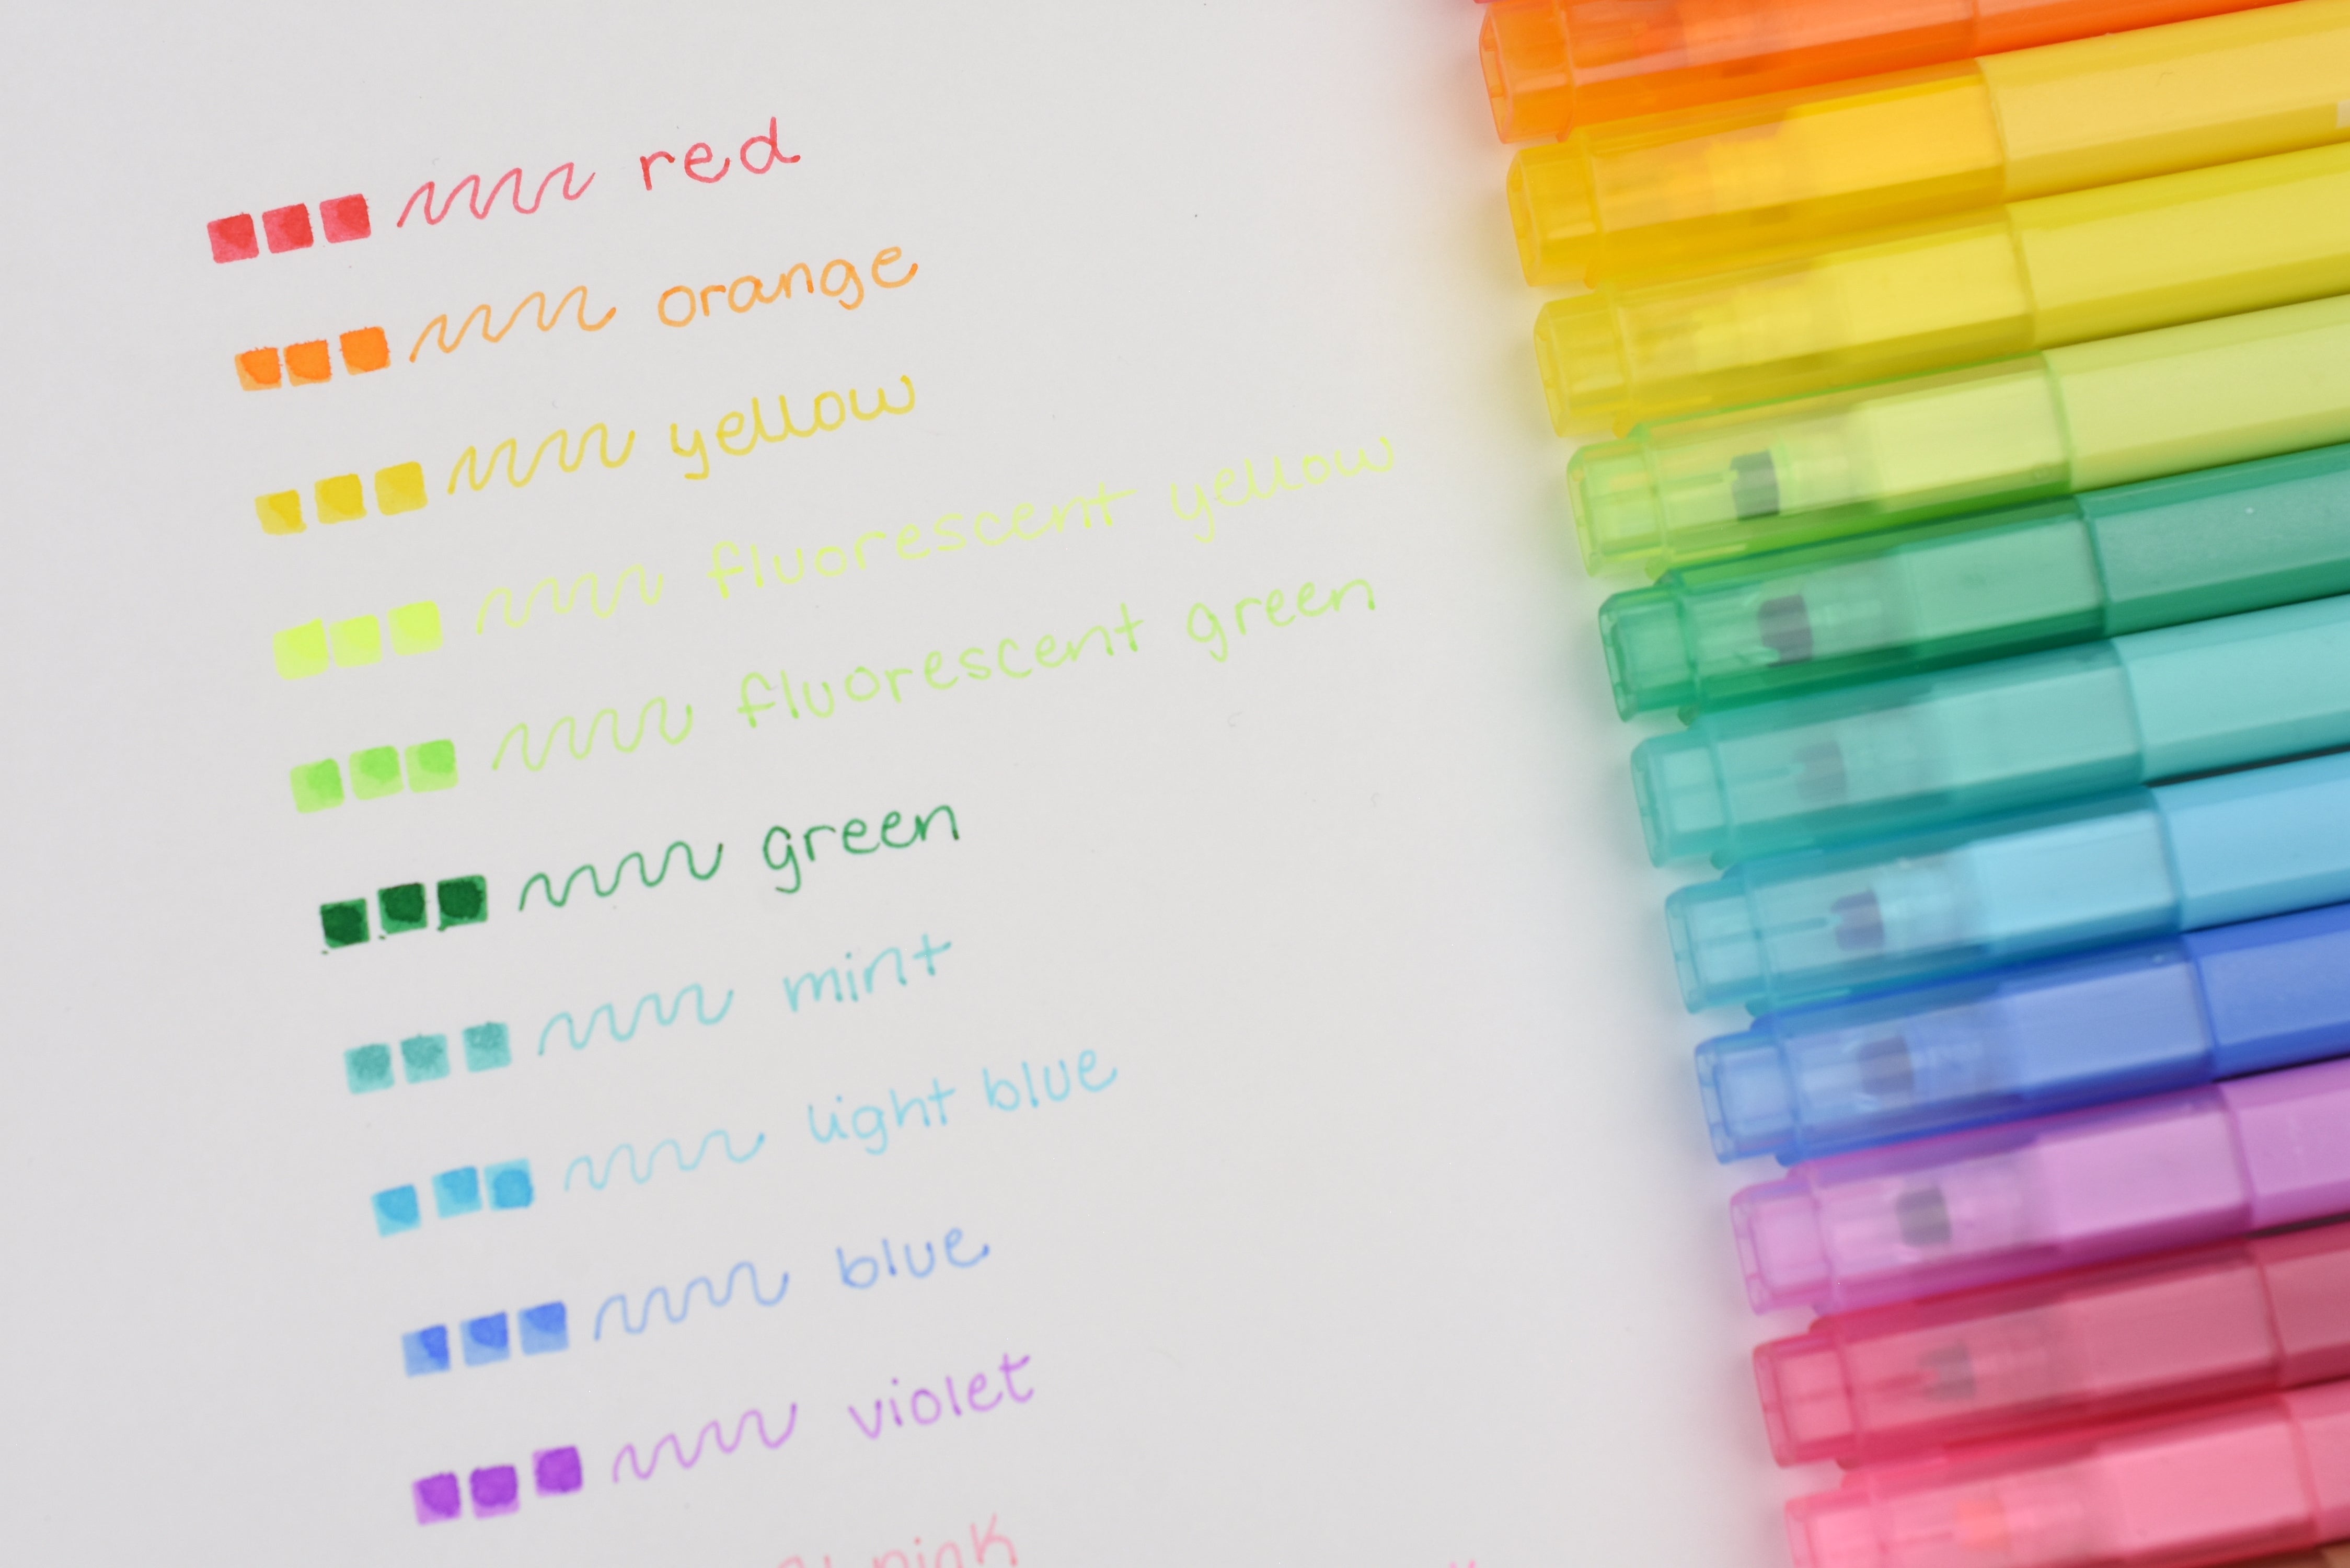 red
orange
yellow
fluorescent yellow
fluorescent green
green
mint
light blue
blue
violet
pink